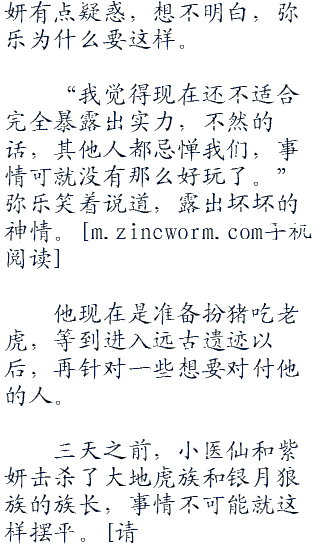 妍有点疑惑，想不明白，弥
乐为什么要这样。
“我觉得现在还不适合
完全暴露出实力，不然的
话，其他人都忌惮我们，事
情可就没有那么好玩了。”
弥乐笑着说道，露出坏坏的
神情。[m.zincworm.com手机
阅读]
他现在是准备扮猪吃老
虎，等到进入远古遗迹以
后，再针对一些想要对付他
的人。
三天之前，小医仙和紫
妍击杀了大地虎族和银月狼
族的族长，事情不可能就这
样摆平。[请